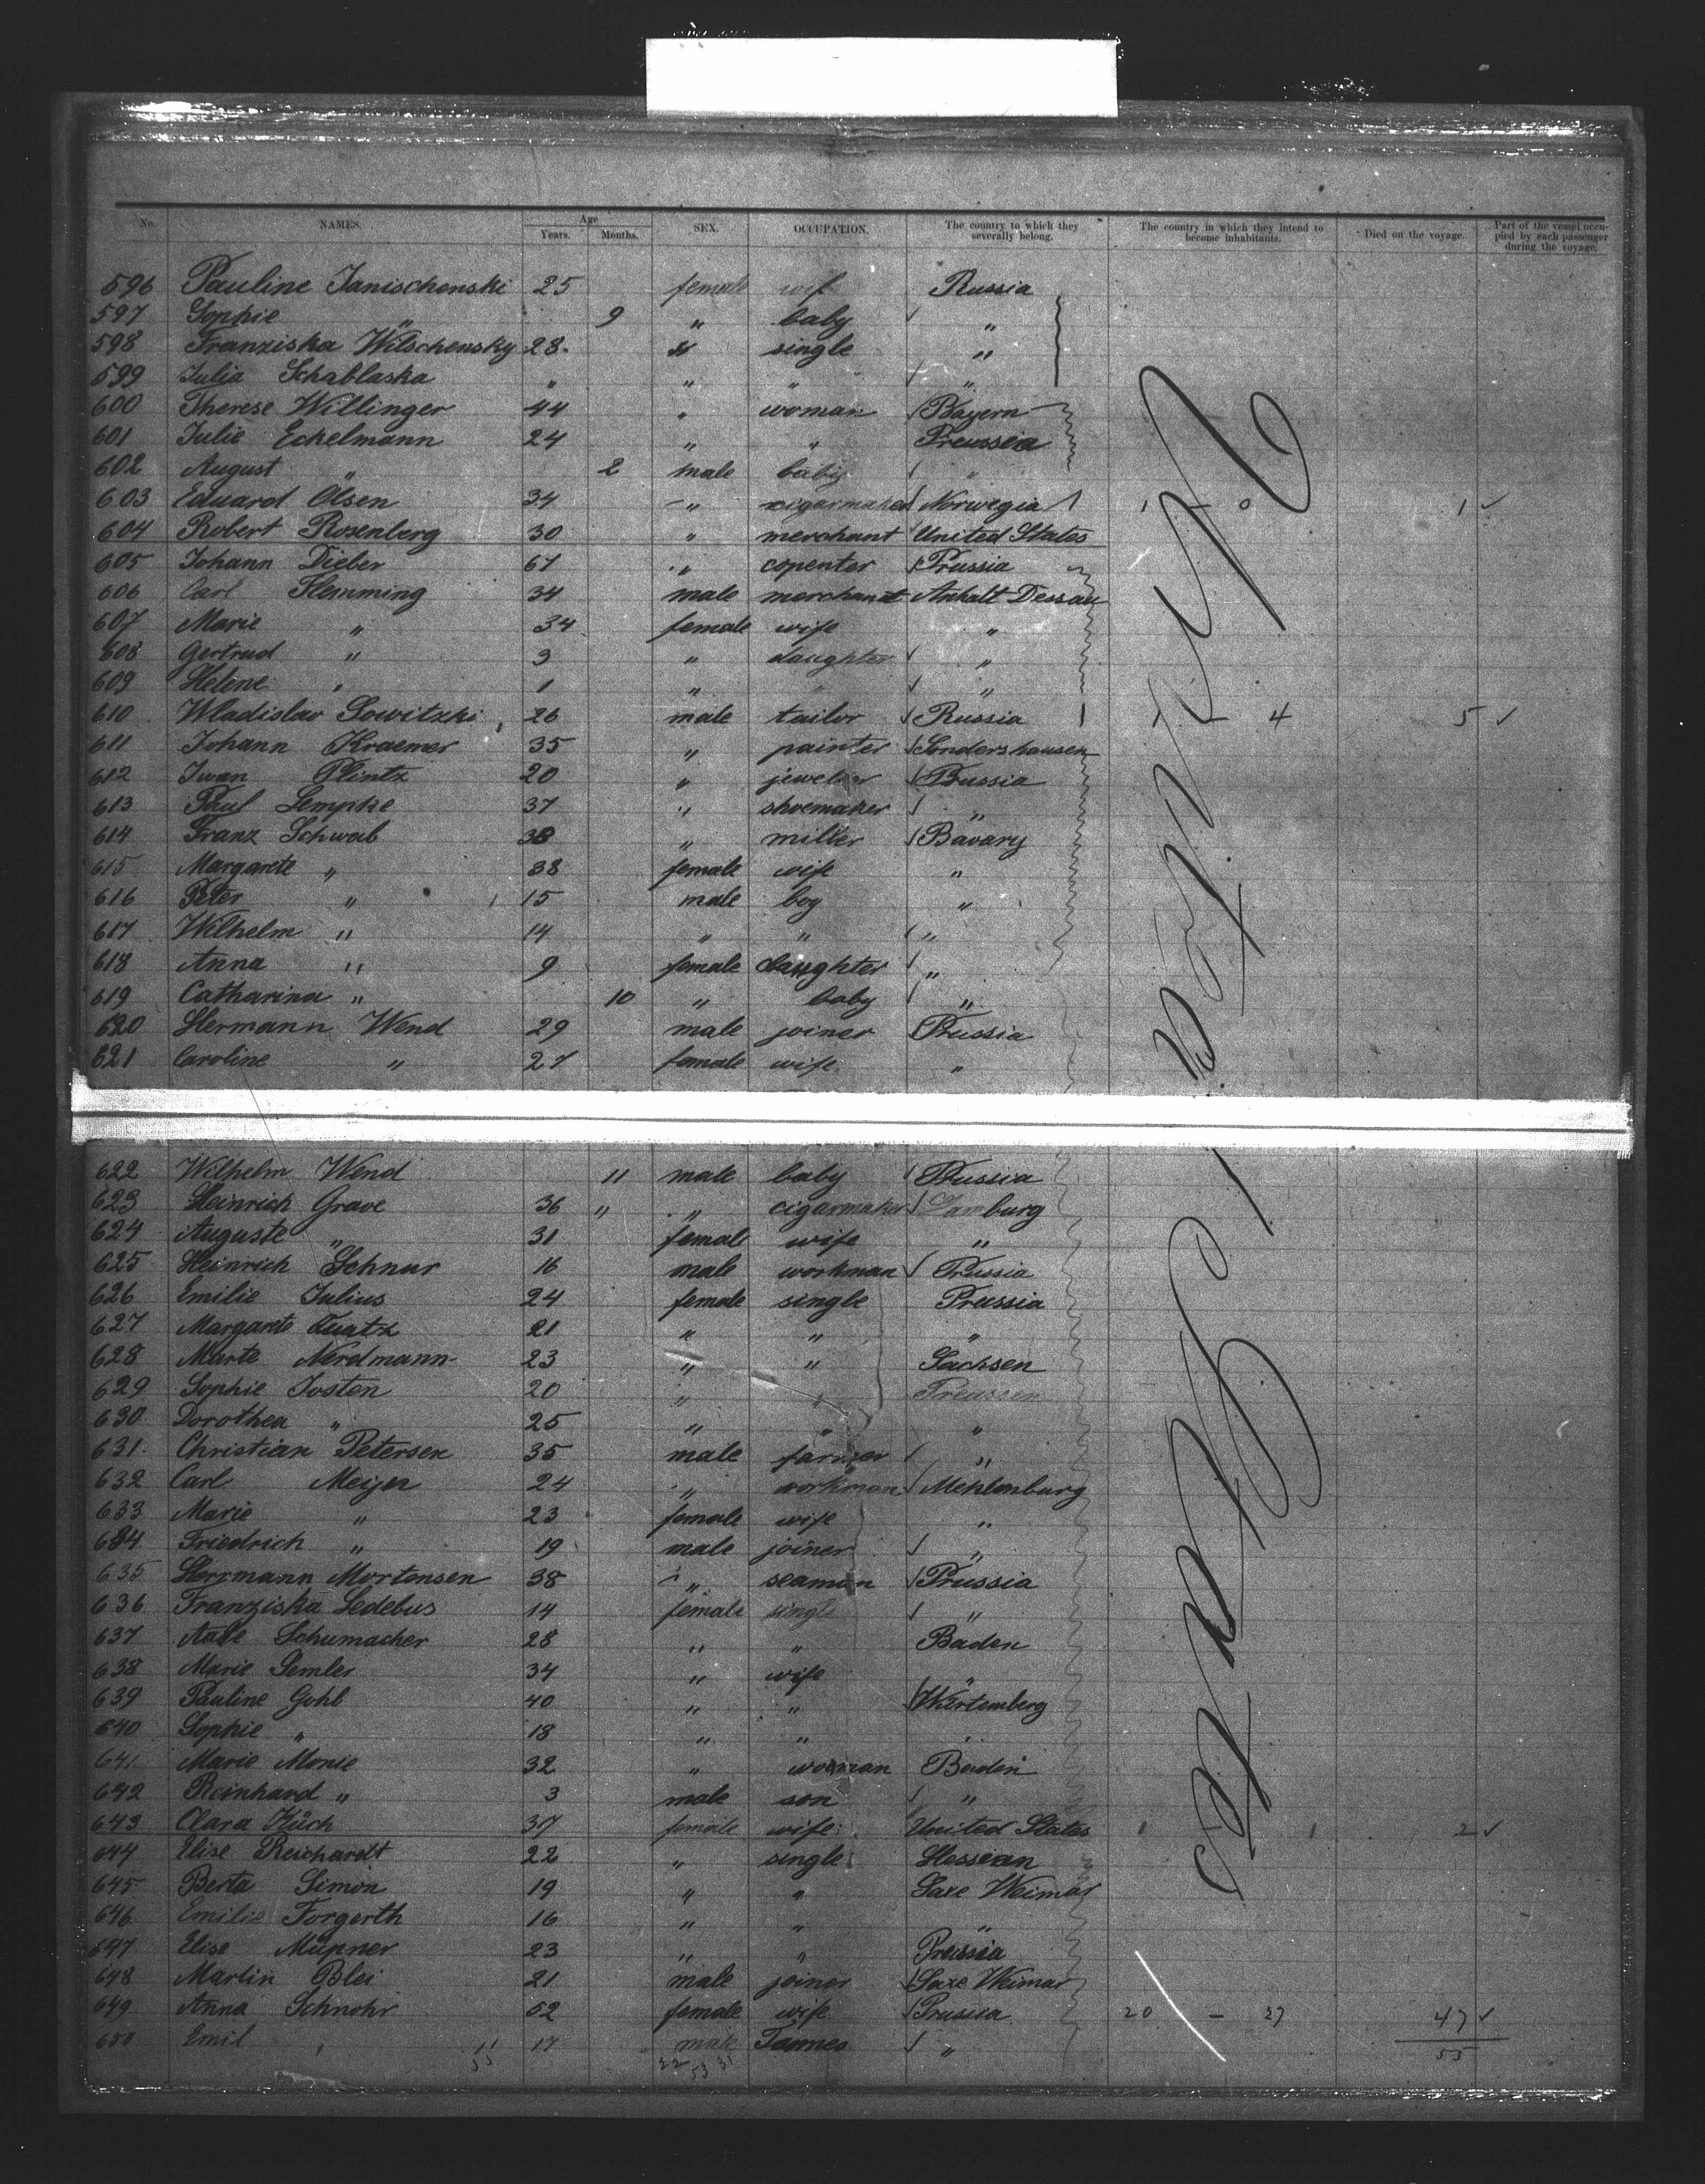 No. NAMES. Age Years. Months. SEX. OCCUPATION. The country to which they severally belong. The country in which they intend to become inhabitants. Died on the voyage. Part of the vessel occupied by each passenger during the voyage.
596 Pauline Janischenski 25 female wife Russia
597 Sophie " 9 " baby "
598 Franziska Wilschensky 28 " single "
599 Julia Schablaska " " " "
600 Therese Willinger 44 " woman Bayern
601 Julie Eckelmann 24 " " Preussia
602 August " 2 male baby "
603 Eduard Olsen 34 " cigarmaker Norwegia 1 - 0 1
604 Robert Rosenberg 30 " merchant United States
605 Johann Dieber 67 " copenter Prussia
606 Carl Flemming 34 male merchant Anhalt Dessau
607 Marie " 34 female wife "
608 Gertrud " 3 " daughter "
609 Helene " 1 " " "
610 Wladislav Sowitzki 26 male tailor Russia 1 - 4 5
611 Johann Kraemer 35 " painter Sondershausen
612 Iwan Plintz 20 " jewelier Prussia
613 Paul Lempke 37 " shoemaker "
614 Franz Schwab 38 " miller Bavary
615 Margarete " 38 female wife "
616 Peter " 15 male boy "
617 Wilhelm " 14 " " "
618 Anna " 9 female daughter "
619 Catharina " 10 " baby "
620 Hermann Wend 29 male joiner Prussia
621 Caroline " 27 female wife "
622 Wilhelm Wend 11 male baby Prussia
623 Heinrich Grave 36 " " cigarmaker Hamburg
624 Auguste " 31 female wife "
625 Heinrich Schnur 16 male workman Prussia
626 Emilie Julius 24 female single Prussia
627 Margarete Quatz 21 " " "
628 Marte Nerdmann 23 " " Sachsen
629 Sophie Josten 20 " " Preussen
630 Dorothea " 25 " " "
631 Christian Petersen 35 male farmer "
632 Carl Meijer 24 " workman Mehlenburg
633 Marie " 23 female wife "
634 Friedrich " 19 male joiner "
635 Herrmann Mortensen 38 " seaman Prussia
636 Franziska Ledebus 14 female single "
637 Schumacher 28 " " Baden
638 Marie Semler 34 " wife "
639 Pauline Gohl 40 " " Würtemberg
640 Sophie " 18 " " "
641 Marie Monie 32 " woman Baden
642 Reinhard " 3 male son "
643 Clara Küch 37 female wife United States 1 1 2
644 Elise Reichardt 22 " single Hessean
645 Berta Simon 19 " " Saxe Weimar
646 Emilie Forgerth 16 " " "
647 Elise Müpner 23 " " Preissia
648 Martin Blei 21 male joiner Saxe Weimar
649 Anna Schnohr 52 female wife Prussia 20 - 27 47
650 Emil " 17 male Tannes " 55
55 22 53 31